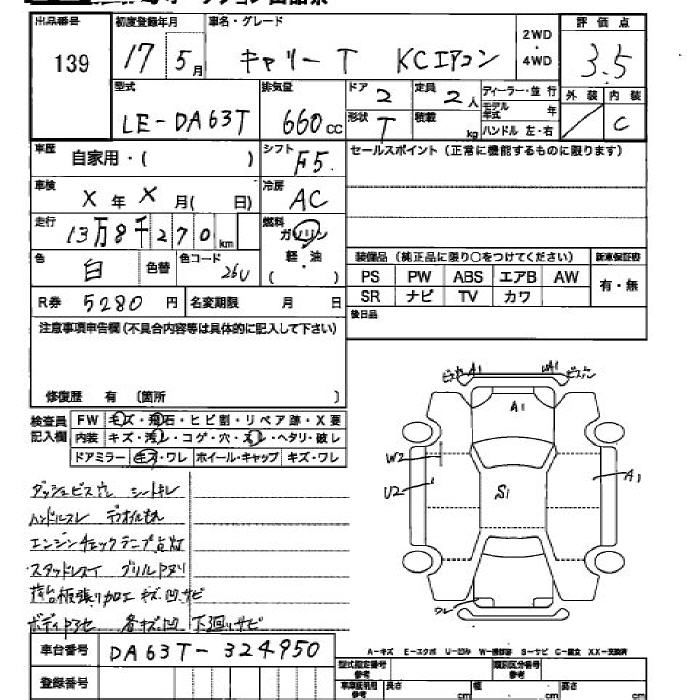 出品番号 139
初度登録年月 17年 5月
車名・グレード キャリー T KCエアコン
2WD・4WD
評価点 3.5
外装 内装 C
型式 LE-DA63T
排気量 660cc
ドア 2
定員 2人
形状 T
積載 kg
ディーラー・並行
モデル年式 年
ハンドル 左・右
車歴 自家用・( )
シフト F5
セールスポイント(正常に機能するものに限ります)
車検 X年X月( 日)
冷房 AC
走行 13万8千270km
燃料 ガソリン 軽・油 ( )
色 白 色替 色コード 26U
装備品(純正品に限り○をつけてください)
新車保証書 有・無
PS PW ABS エアB AW
SR ナビ TV カワ
R券 5280円
名変期限 月 日
後日品
注意事項申告欄(不具合内容等は具体的に記入して下さい)
修復歴 有 〔箇所 〕
検査員記入欄
FW キズ・飛石・ヒビ割・リペア跡・X要
内装 キズ・汚レ・コゲ・穴・スレ・ヘタリ・破レ
ドアミラー キズ・ワレ ホイール・キャップ キズ・ワレ
ダッシュビス穴 シートキレ
ハンドルスレ
エンジンチェックランプ点灯
スタッドレス
荷台板張り加工 キズ、凹、サビ
ボディ 各キズ凹 下廻りサビ
ビス穴 A1 A1 ビス穴
A1
W2
U2
S1
A1
ワレ
A-キズ E-エクボ U-凹み W-補修跡 S-サビ C-腐食 XX-交換済
車台番号 DA63T-324950
型式指定番号 参考
類別区分番号 参考
登録番号
車庫証明用 参考 長さ cm 幅 cm 高さ cm